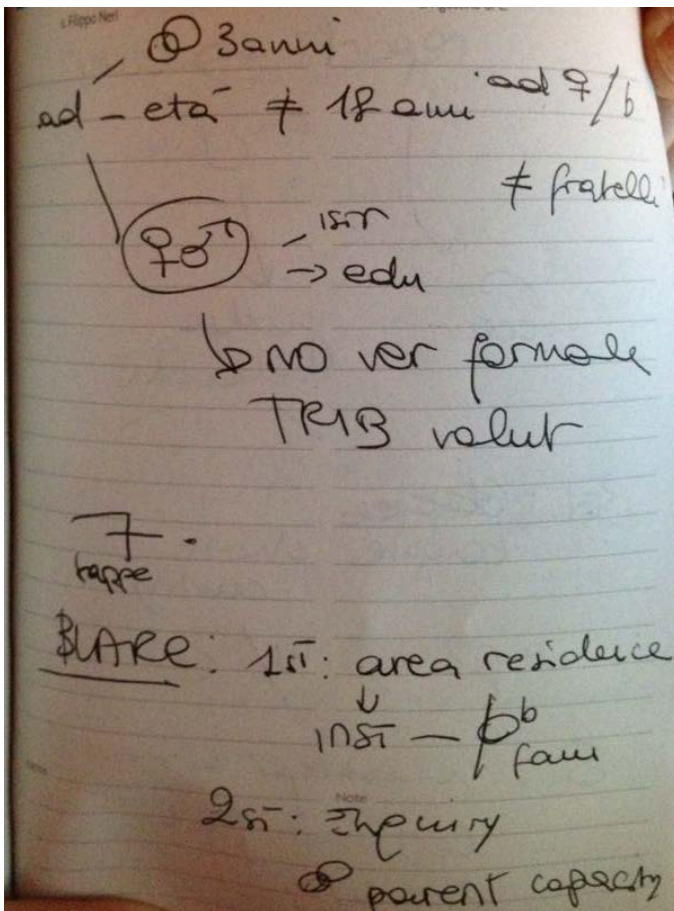 s. Filippo Neri
3 anni
ad - età ≠ 18 anni ad ♀/b
≠ fratelli
♀♂ istr
→ edu
↳ NO ver formale
TRIB valut
7.
tappe
1st: area residence
↓
inst — b
fam
Note
2st: Enquiry
parent capacity